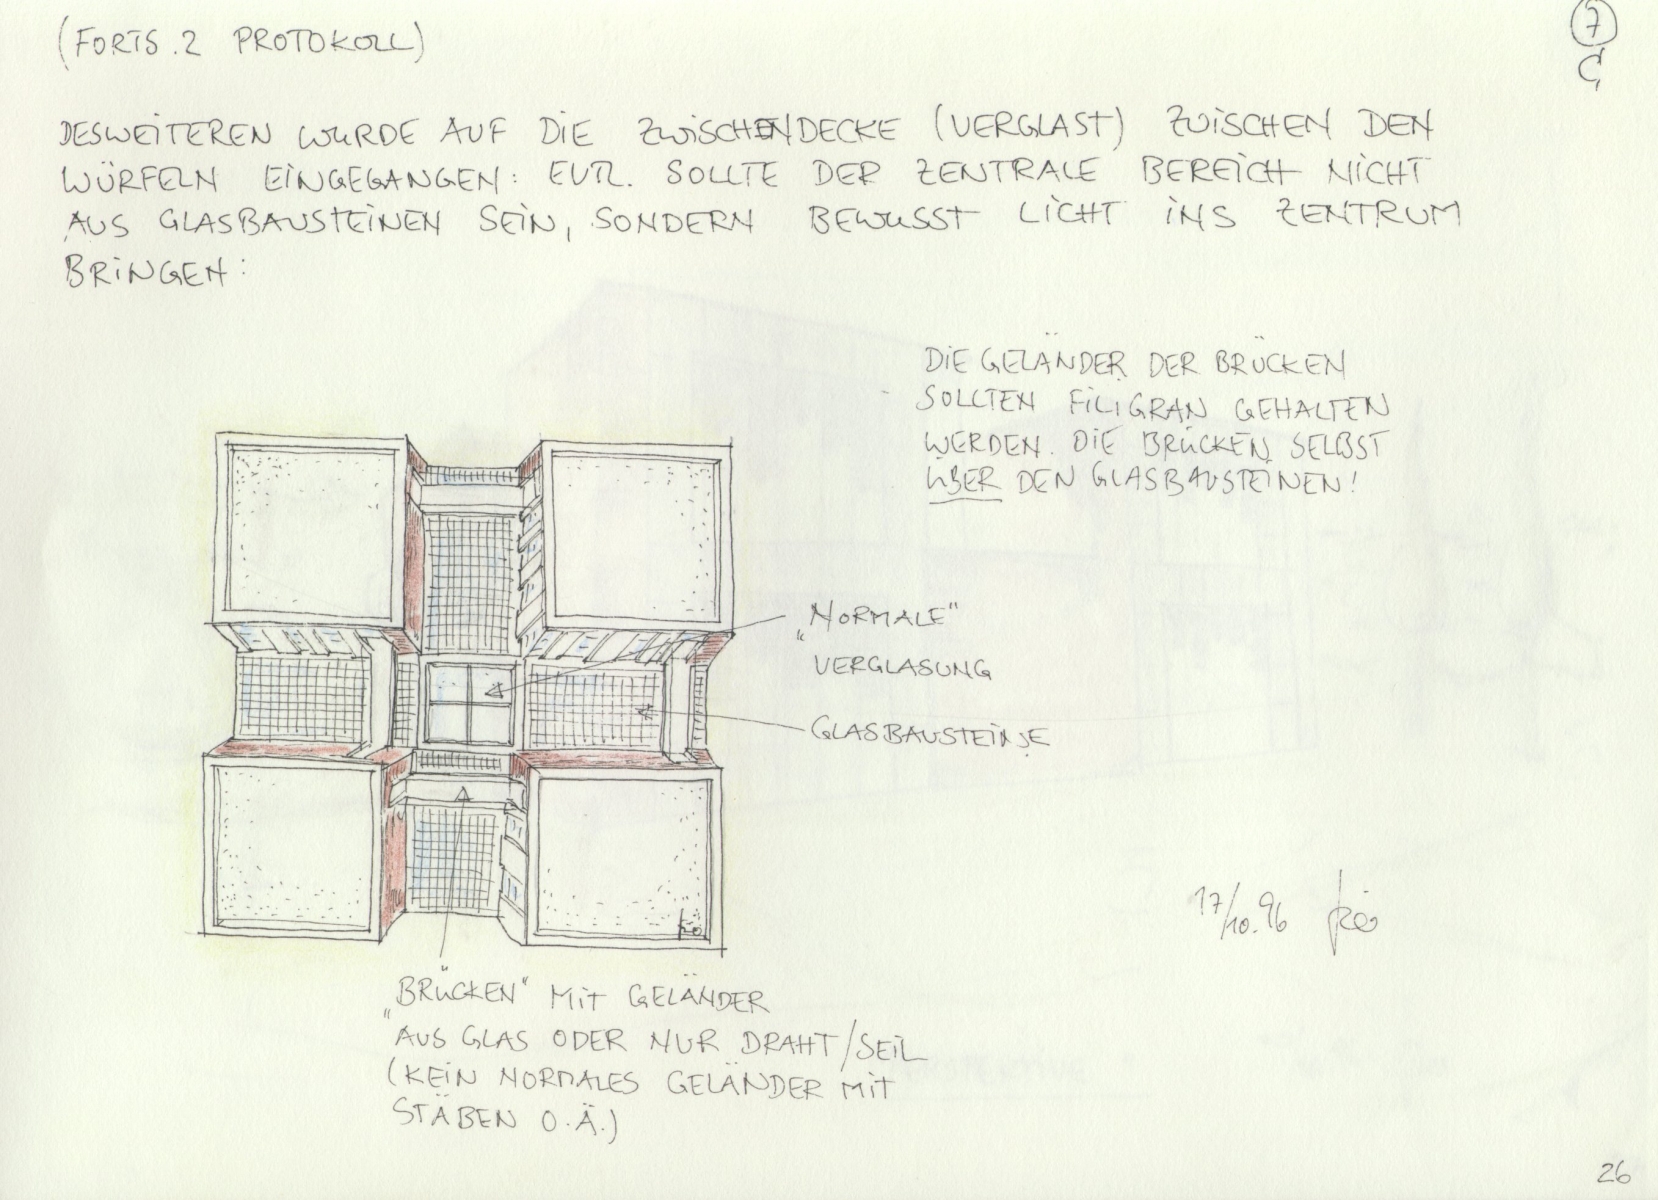 (FORTS. 2 PROTOKOLL)
7
C
DESWEITEREN WURDE AUF DIE ZWISCHENDECKE (VERGLAST) ZWISCHEN DEN
WÜRFELN EINGEGANGEN: EVTL. SOLLTE DER ZENTRALE BEREICH NICHT
AUS GLASBAUSTEINEN SEIN, SONDERN BEWUSST LICHT INS ZENTRUM
BRINGEN:
DIE GELÄNDER DER BRÜCKEN
SOLLTEN FILIGRAN GEHALTEN
WERDEN. DIE BRÜCKEN SELBST
ÜBER DEN GLASBAUSTEINEN!
„NORMALE"
VERGLASUNG
GLASBAUSTEINE
17/10.96
„BRÜCKEN" MIT GELÄNDER
AUS GLAS ODER NUR DRAHT/SEIL
(KEIN NORMALES GELÄNDER MIT
STÄBEN O.Ä.)
26